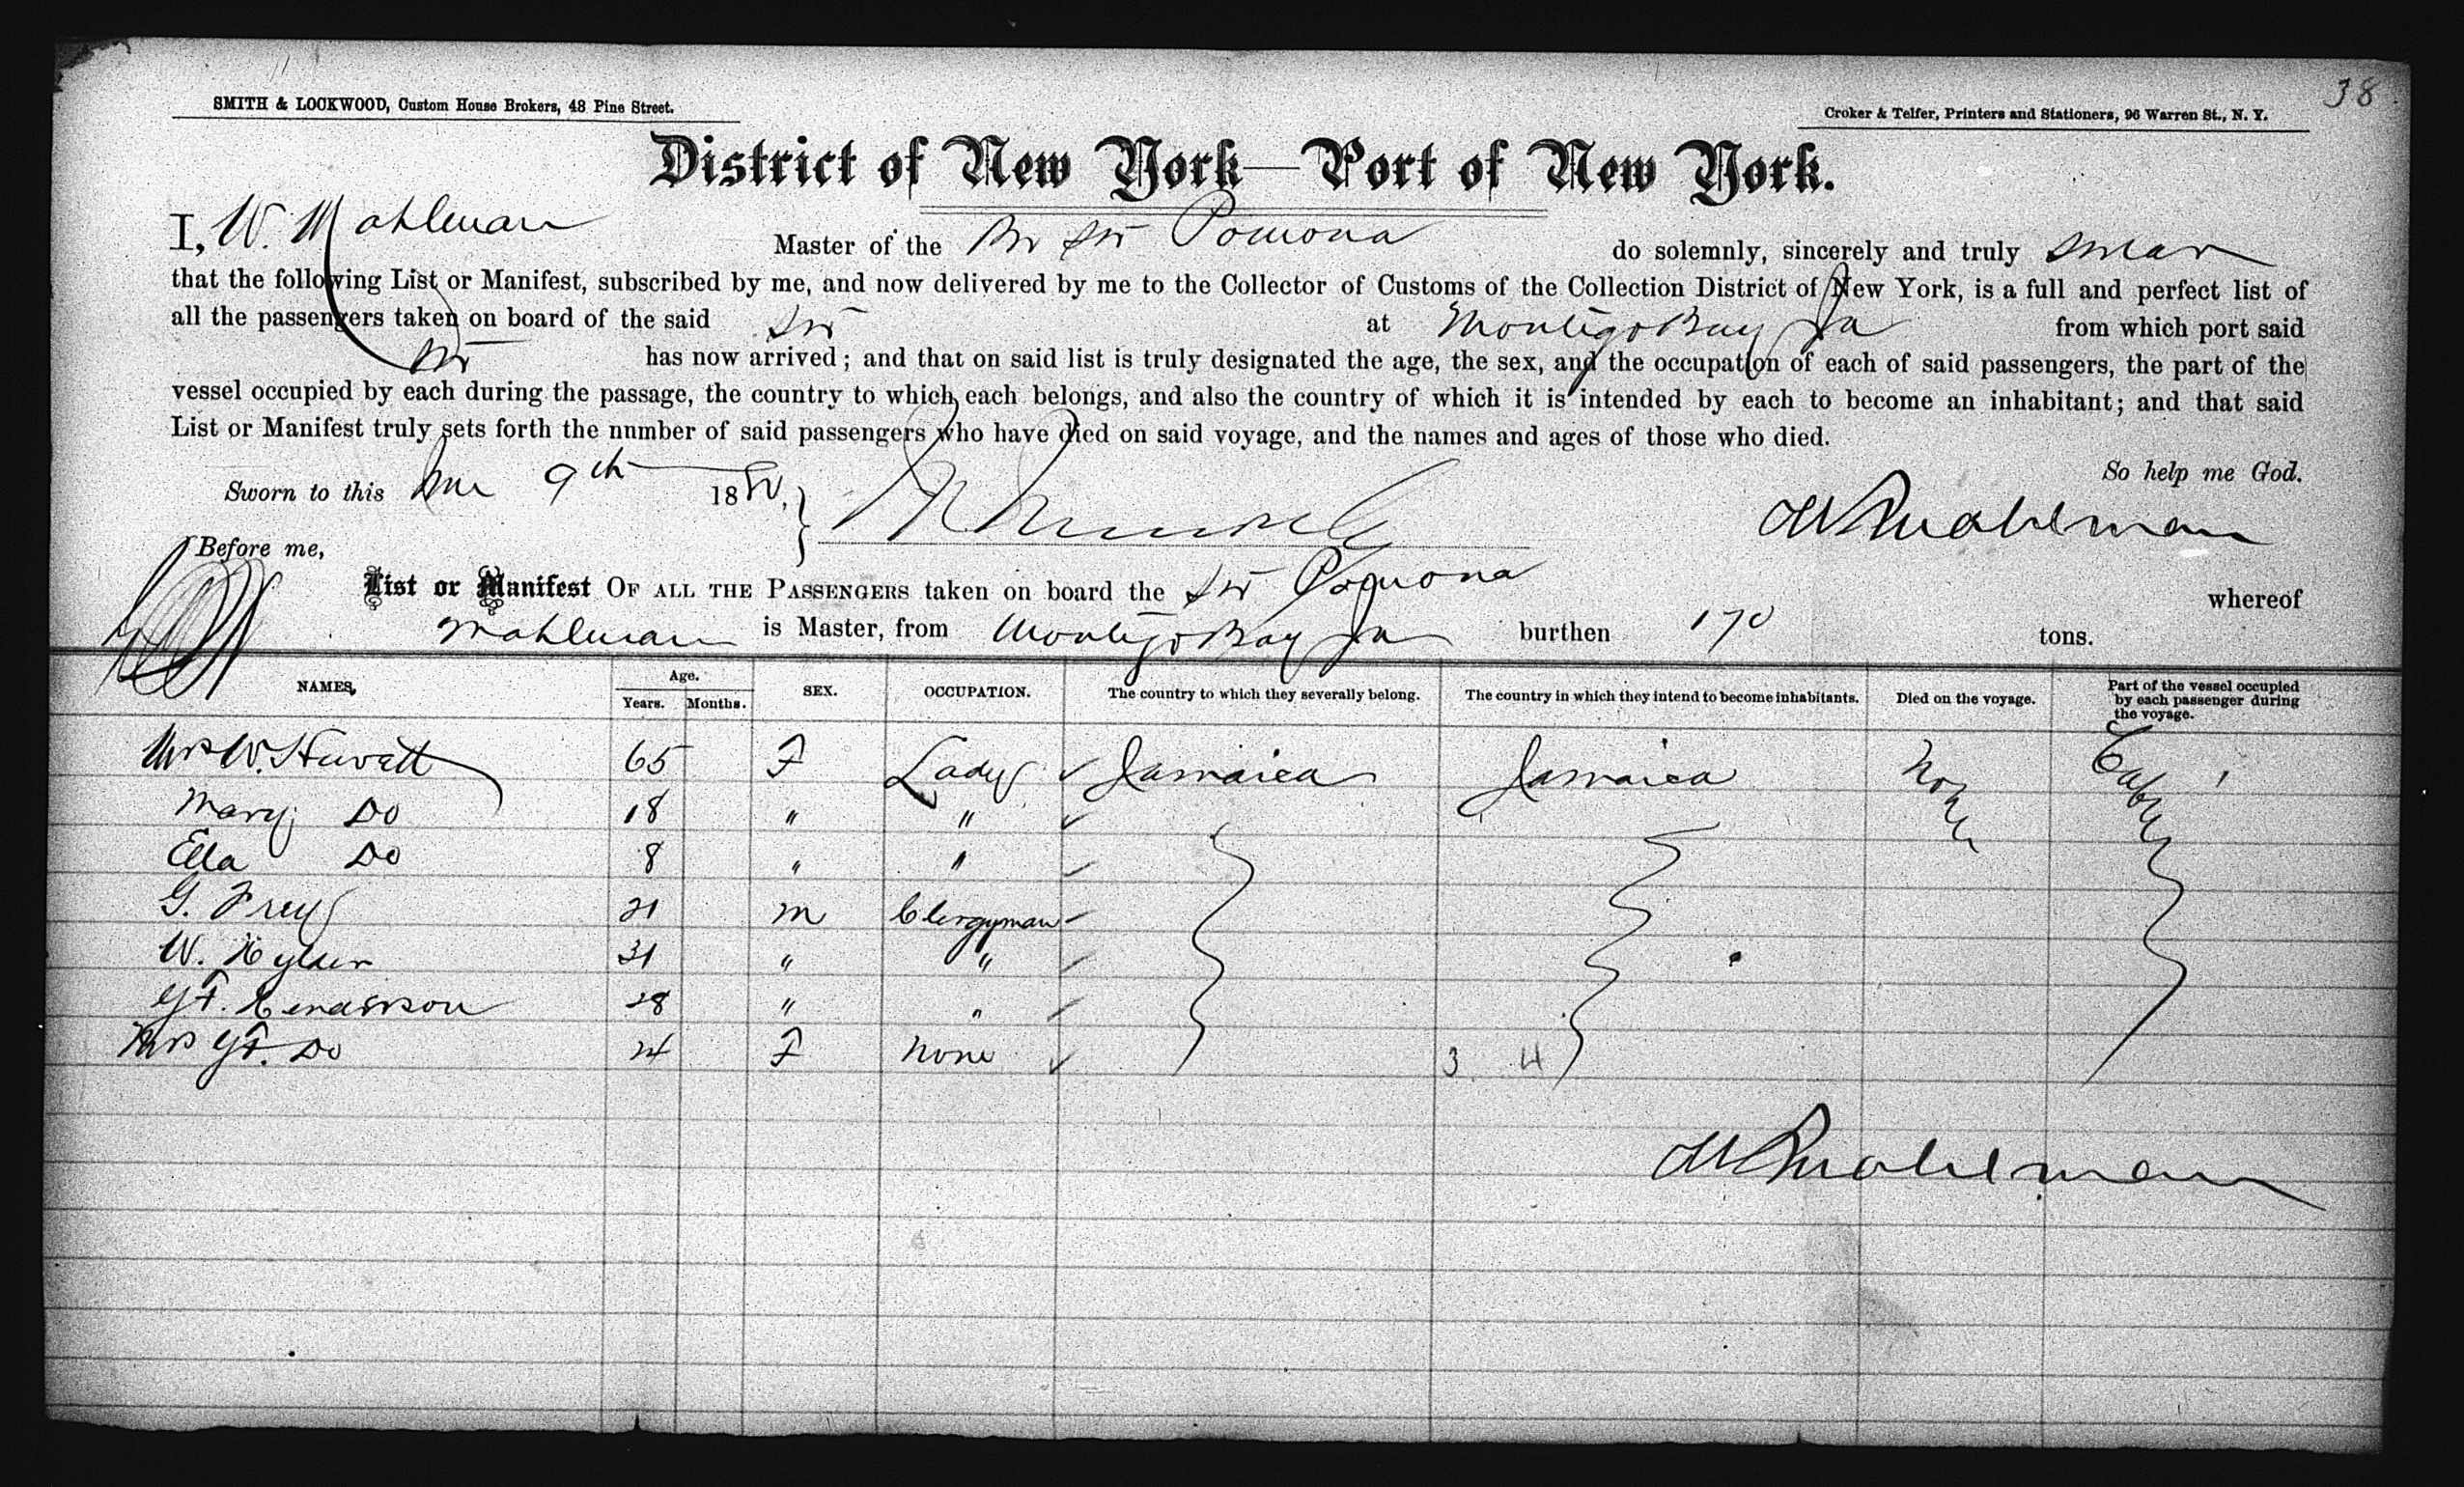 38
SMITH & LOCKWOOD, Custom House Brokers, 48 Pine Street.
Croker & Telfer, Printers and Stationers, 96 Warren St., N. Y.
District of New York—Port of New York.
I, W. Mahlman Master of the Br Str Pomona do solemnly, sincerely and truly swear
that the following List or Manifest, subscribed by me, and now delivered by me to the Collector of Customs of the Collection District of New York, is a full and perfect list of
all the passengers taken on board of the said Str at Montego Bay Ja from which port said
Str has now arrived; and that on said list is truly designated the age, the sex, and the occupation of each of said passengers, the part of the
vessel occupied by each during the passage, the country to which each belongs, and also the country of which it is intended by each to become an inhabitant; and that said
List or Manifest truly sets forth the number of said passengers who have died on said voyage, and the names and ages of those who died.
So help me God.
Sworn to this 9th 188
W Mahlman
Before me,
List or Manifest OF ALL THE PASSENGERS taken on board the Str Pomona whereof
Mahlman is Master, from Montego Bay Ja burthen 170 tons.
NAMES, Age. Years. Months. SEX. OCCUPATION. The country to which they severally belong. The country in which they intend to become inhabitants. Died on the voyage. Part of the vessel occupied by each passenger during the voyage.
Mrs W. 65 F Lady Jamaica Jamaica None Cabin
Mary Do 18 " "
Ella Do 8 " "
G. Frey 21 M Clergyman
W. 31 " "
28 " "
Mrs Do 24 F None 3 4
W Mahlman